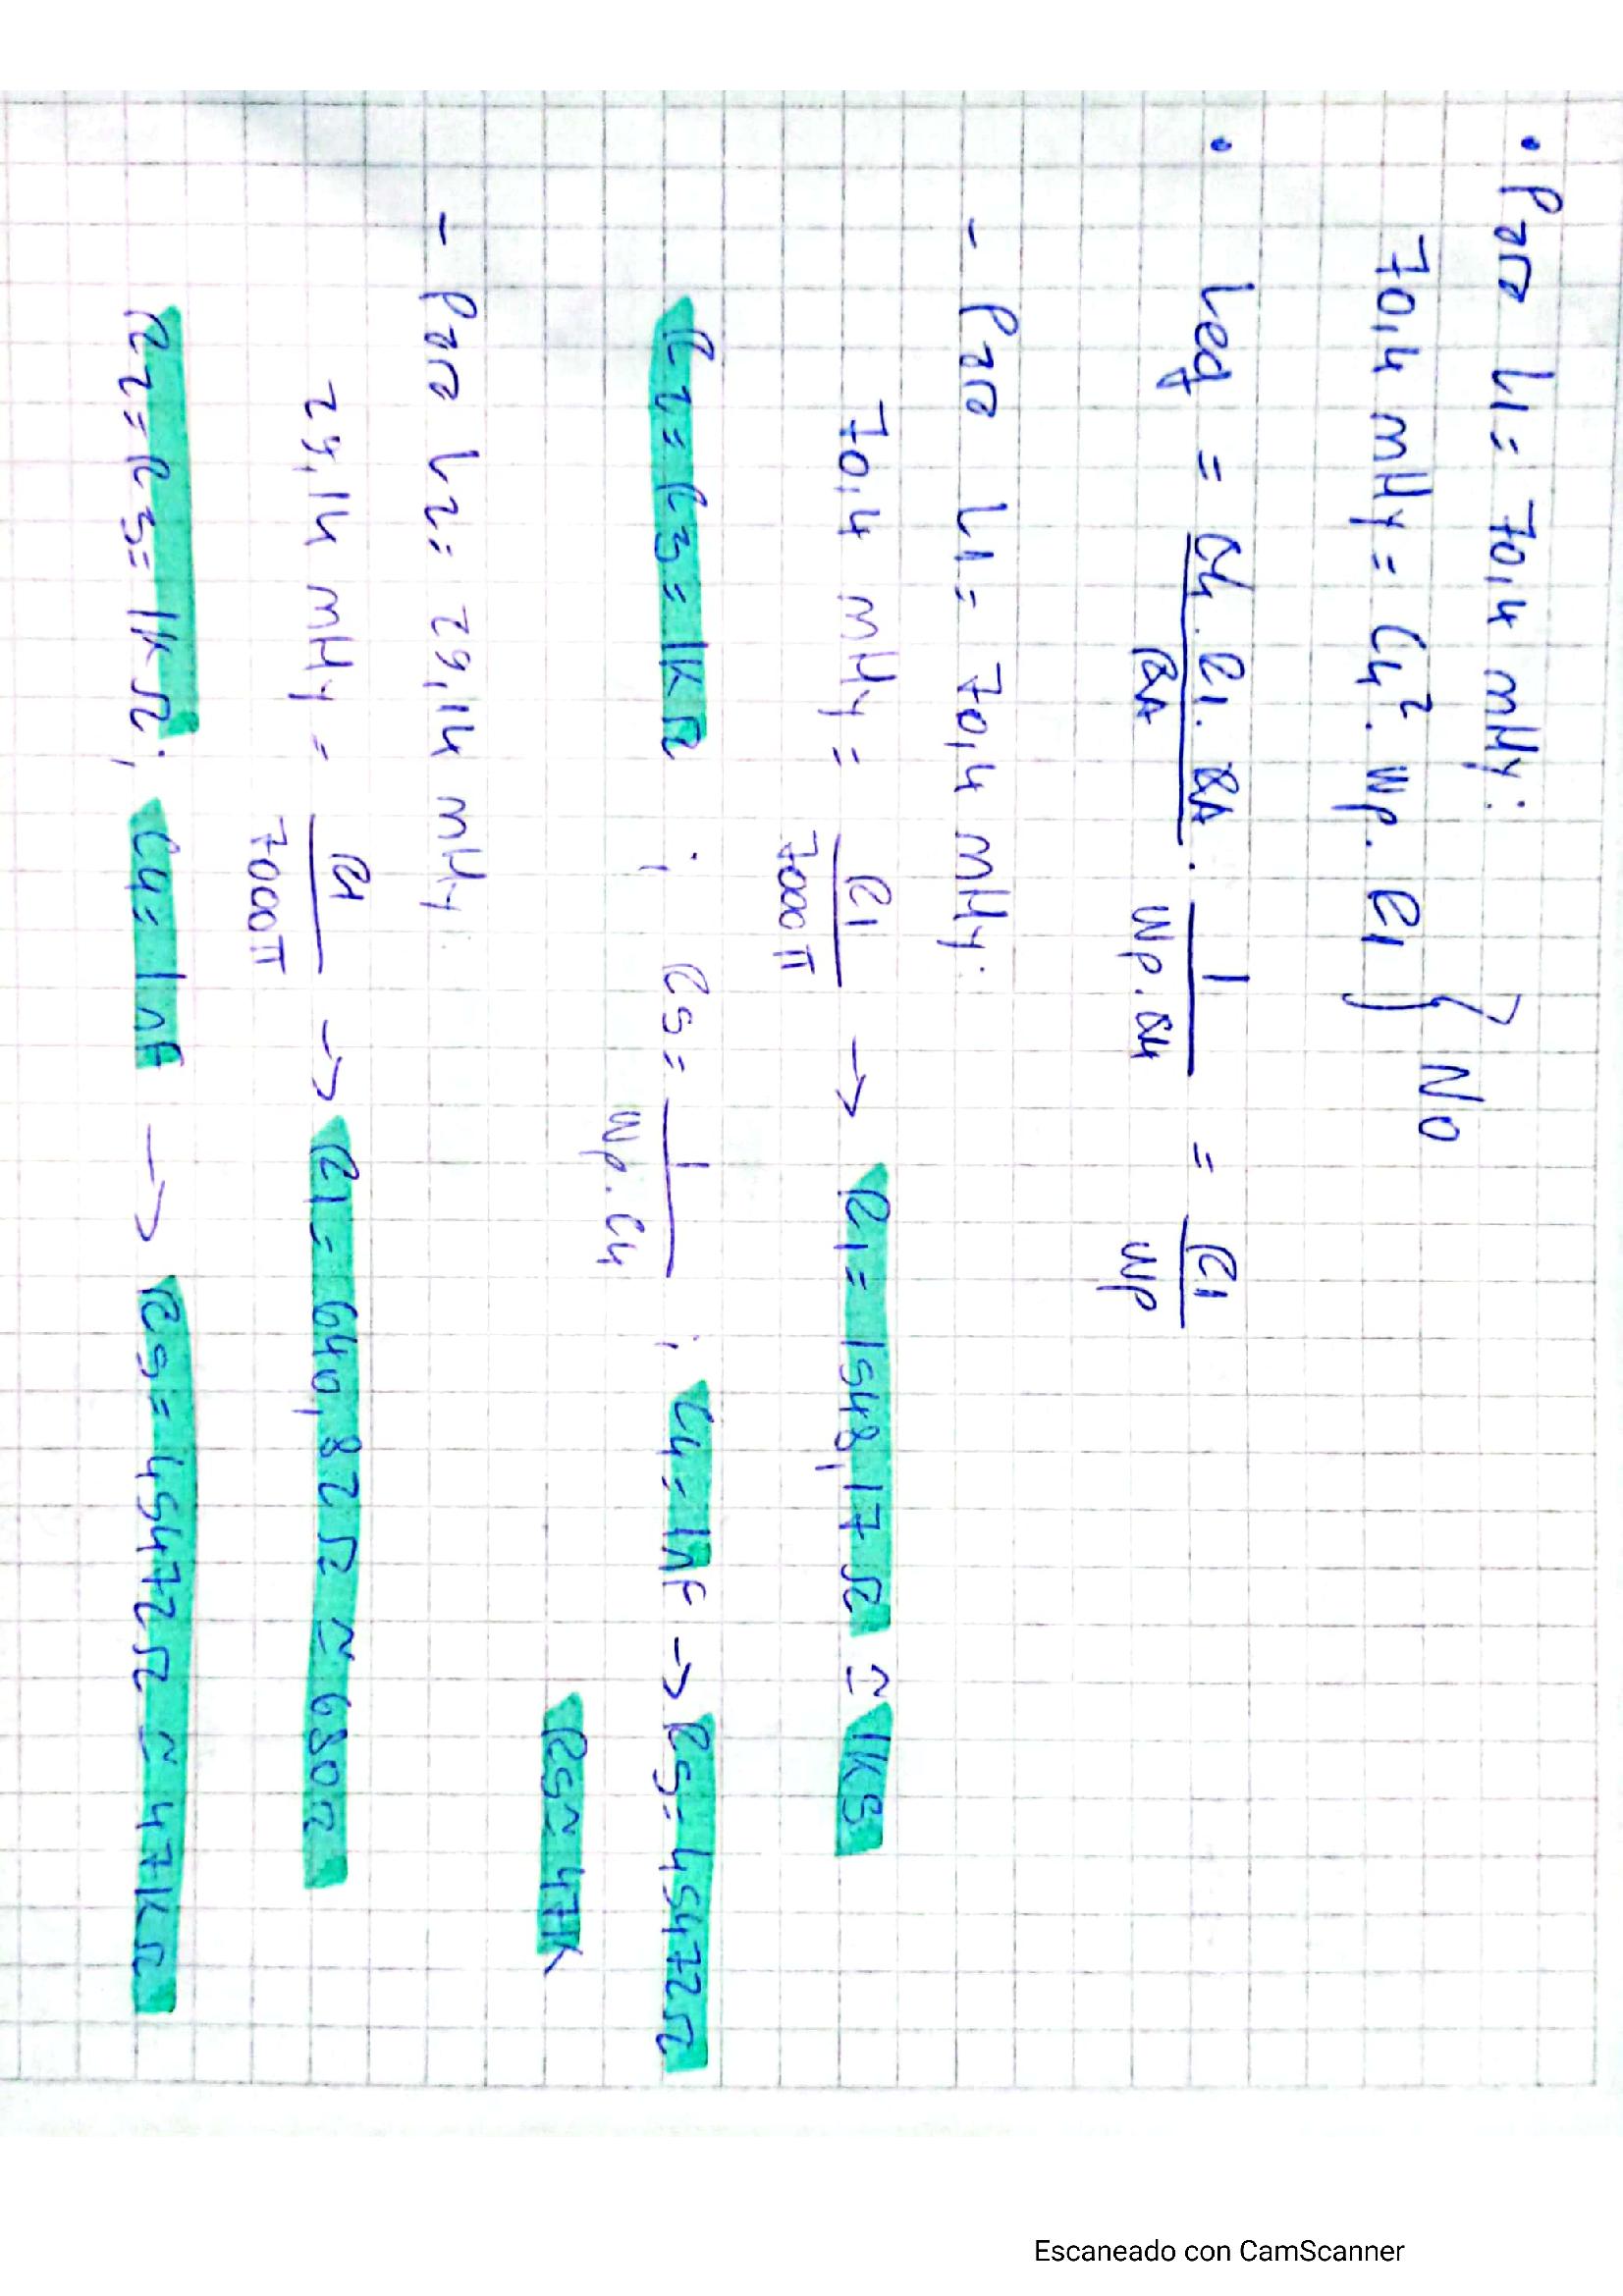 • Para L1 = 70,4 mHy:
70,4 mHy = C4². Wp. R1 } No
• Leq = C4 . R1 . RA / RA . 1 / Wp . C4 = R1 / Wp
- Para L1 = 70,4 mHy:
70,4 mHy = R1 / 7000 π -> R1 = 1548,17 Ω ≃ 1K5
R2 = R3 = 1K Ω ; R5 = 1 / Wp . C4 ; C4 = 1nF -> R5 = 45472 Ω
R5 ≃ 47K
- Para L2 = 29,14 mHy:
29,14 mHy = R1 / 7000 π -> R1 = 640,82 Ω ≃ 680 Ω
R2 = R3 = 1K Ω ; C4 = 1 nF -> R5 = 45472 Ω ≃ 47K Ω
Escaneado con CamScanner